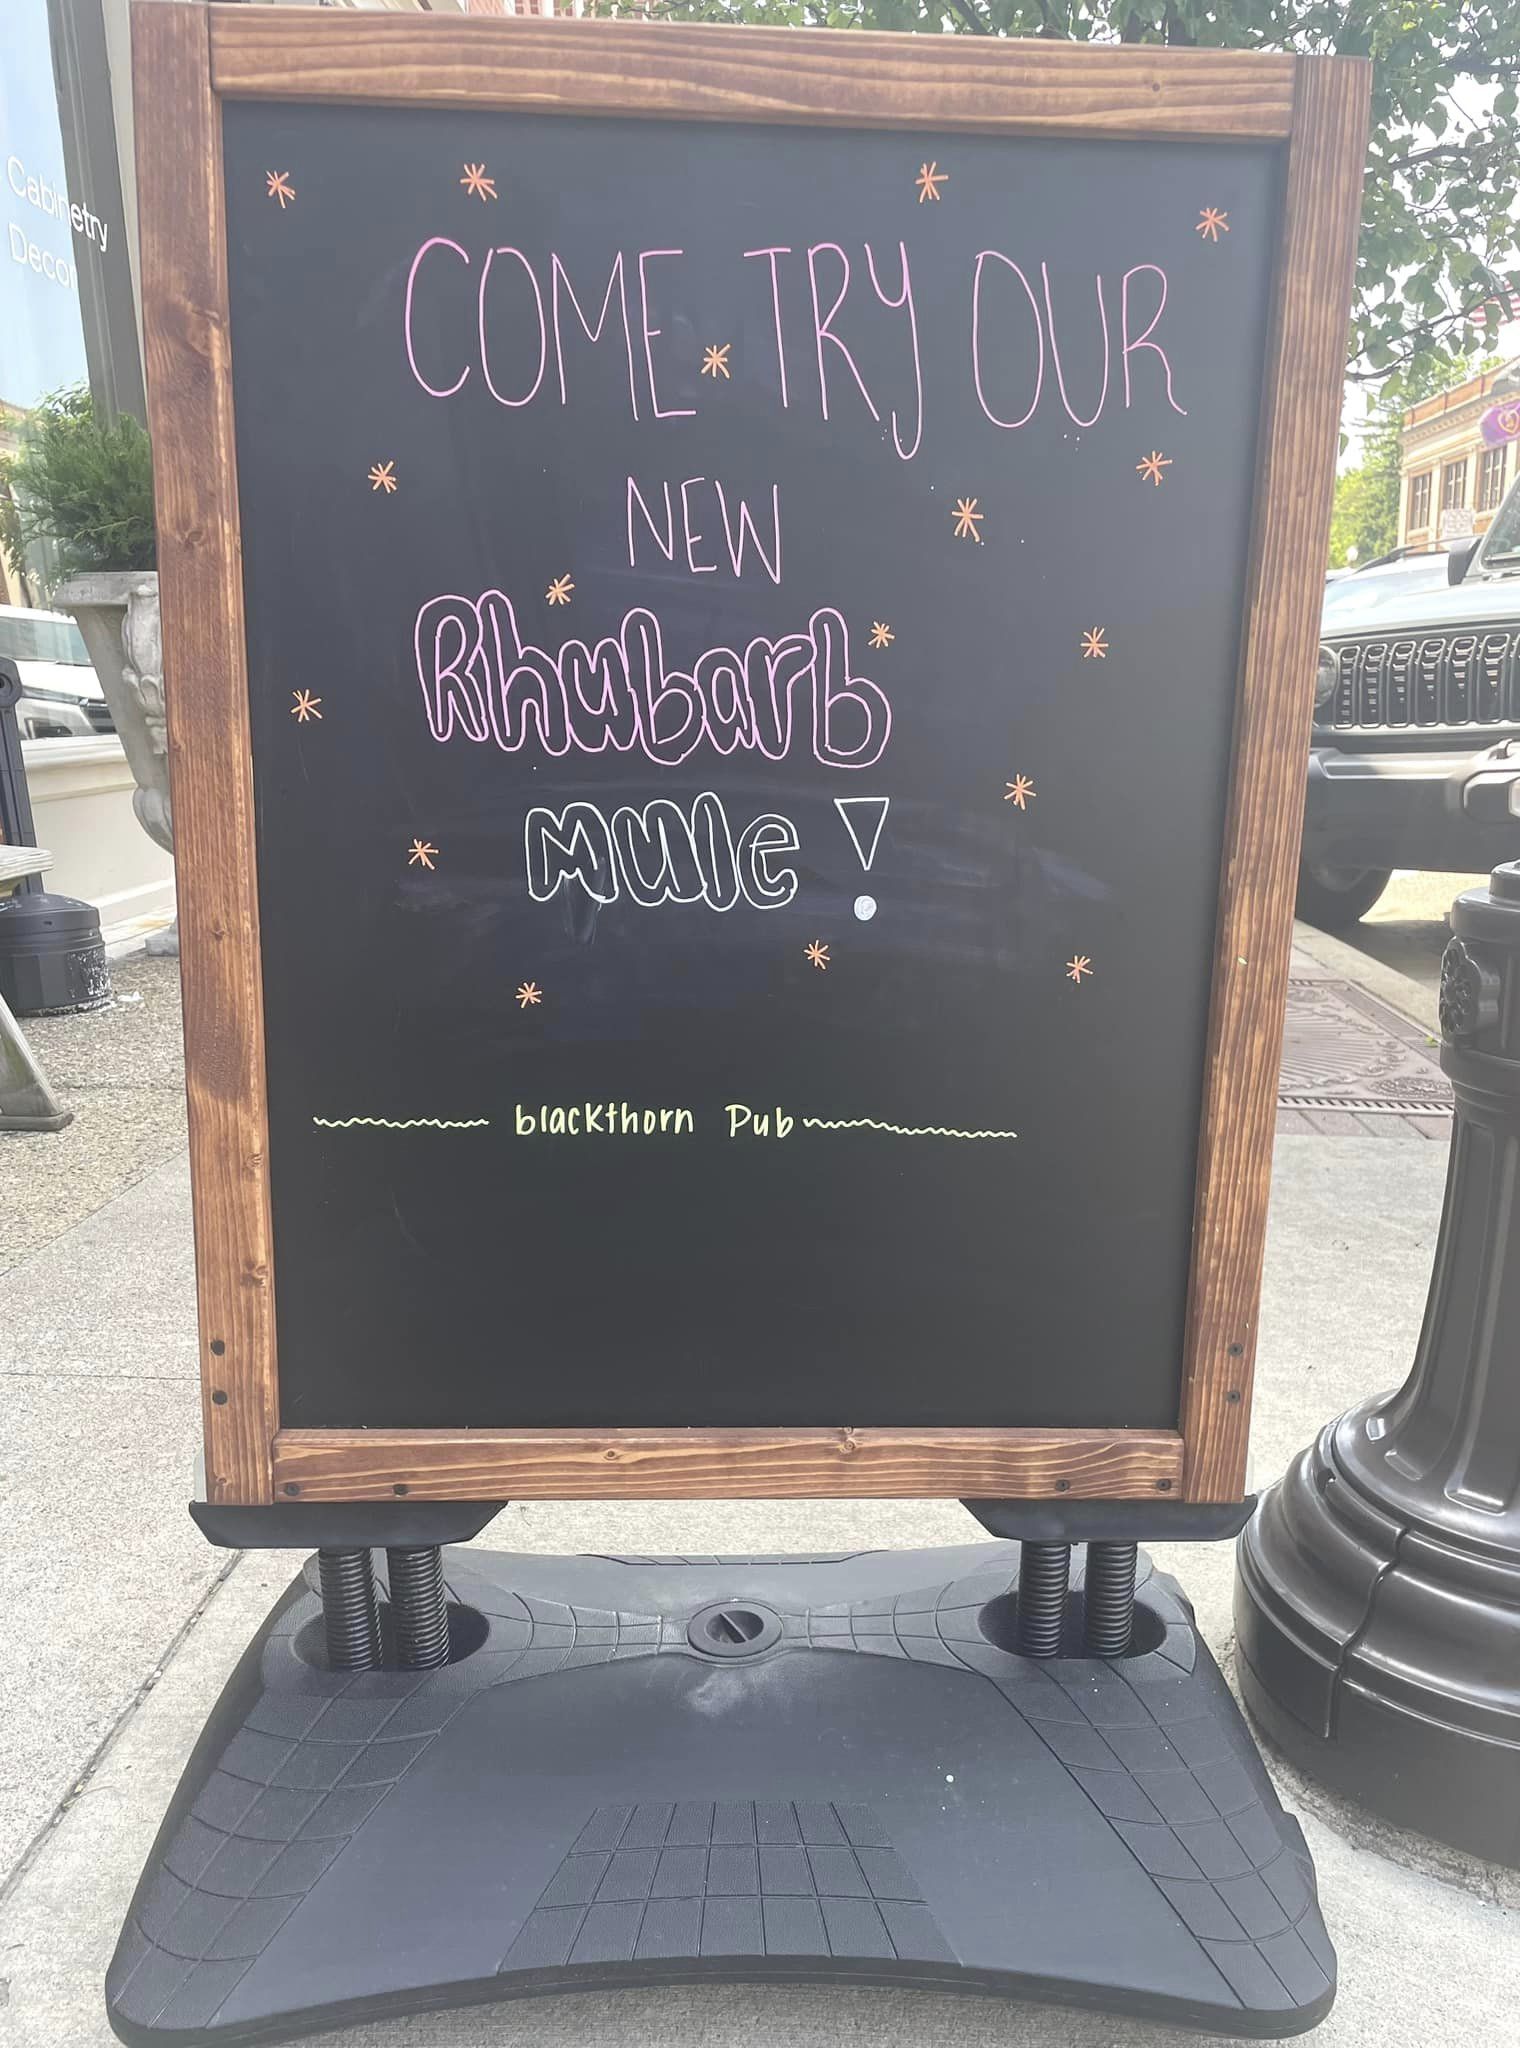 Cabinetry
Decor
COME TRY OUR
NEW
Rhubarb
mule!
blackthorn Pub